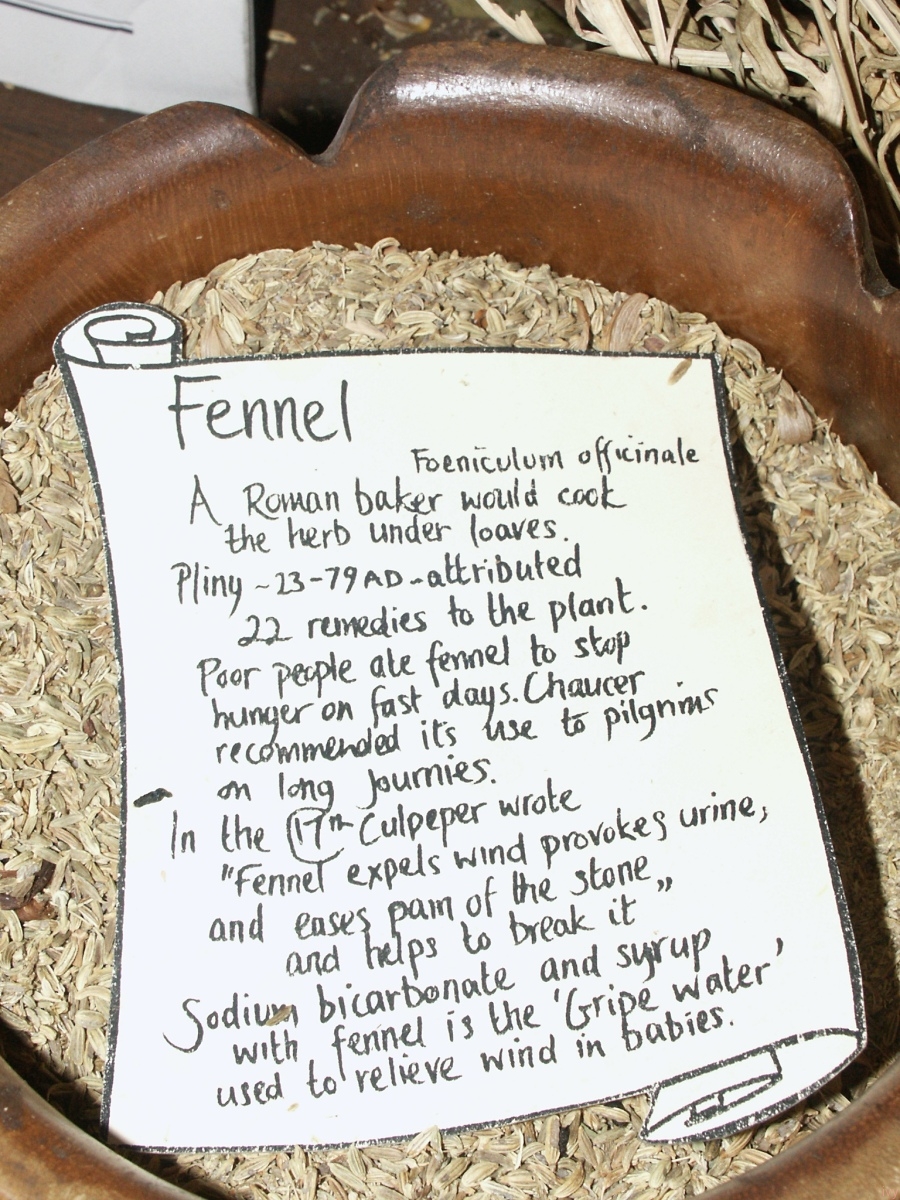 Fennel
Foeniculum officinale
A Roman baker would cook
the herb under loaves.
Pliny ~ 23-79 AD - attributed
22 remedies to the plant.
Poor people ate fennel to stop
hunger on fast days. Chaucer
recommended it's use to pilgrims
on long journies.
In the 17th Culpeper wrote
"Fennel expels wind provokes urine,
and eases pain of the stone„
and helps to break it
Sodium bicarbonate and syrup
with fennel is the 'Gripe water'
used to relieve wind in babies.